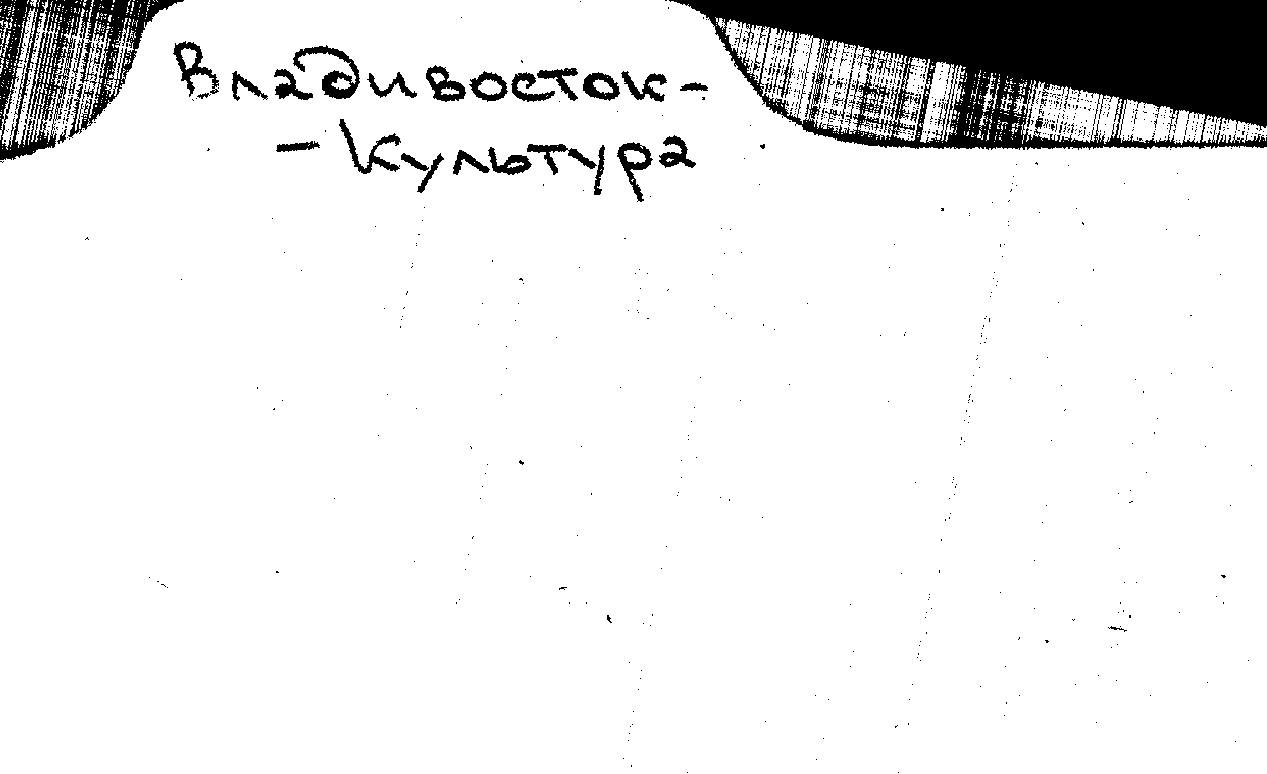 Владивосток-
- Культура